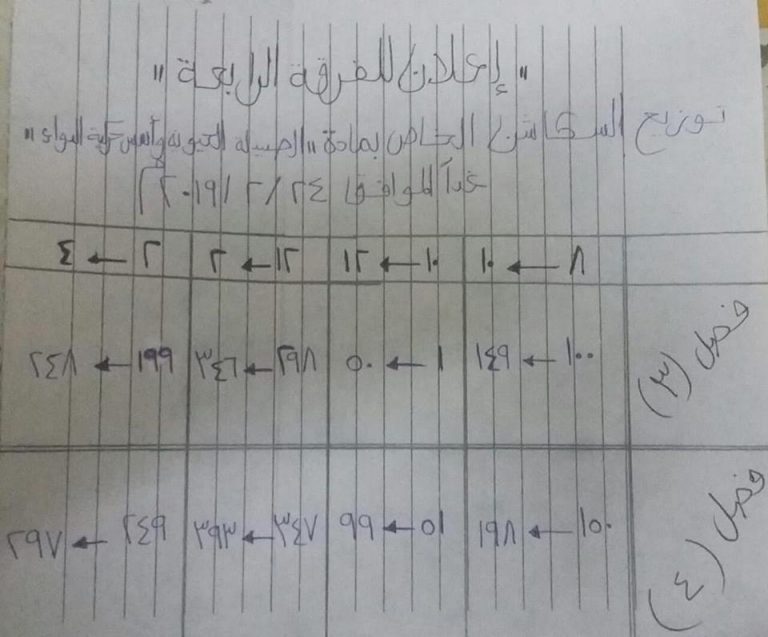 "إعلان للفرقة الرابعة"
توزيع السكاشن الخاص بمادة "الصيدلة الحيوية وأسس حركية الدواء"
غداً الموافق ٢٤/ ٢/ ٢٠١٩م
٨ ← ١٠ ١٠ ← ١٢ ١٢ ← ٢ ٢ ← ٤
فصل (٣) ١٠٠ ← ١٤٩ ١ ← ٥٠ ٢٩٨ ← ١٩٩ ← ٢٤٨
فصل (٤) ١٥٠ ← ١٩٨ ٥١ ← ٩٩ ← ٢٤٩ ← ٢٩٧